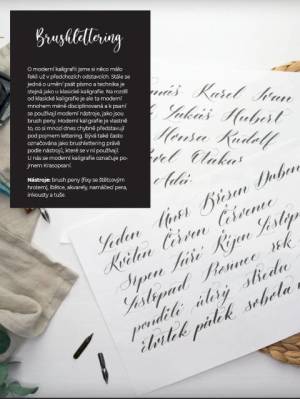 Brushlettering
O moderní kaligrafii jsme si něco málo
řekli už v předchozích odstavcích. Stále se
jedná o umění psát písmo a technika je
stejná jako u klasické kaligrafie. Na rozdíl
od klasické kaligrafie je ale ta moderní
mnohem méně disciplinovaná a k psaní
se používají moderní nástroje, jako jsou
brush peny. Moderní kaligrafie je vlastně
to, co si mnozí dnes chybně představují
pod pojmem lettering. Bývá také často
označována jako brushlettering právě
podle nástrojů, které se v ní používají.
U nás se moderní kaligrafie označuje po-
jmem Krasopsaní.
Nástroje: brush peny (fixy se štětcovým
hrotem), štětce, akvarely, namáčecí pera,
inkousty a tuše.
Karel Ivan
Lukáš Hubert
Honsa Rudolf
Otakus
Leden Únor Březen Duben
Květen Červen Červenec
Srpen Září Říjen Listopad
Listopad Prosinec
pondělí úterý středa
čtvrtek pátek sobota